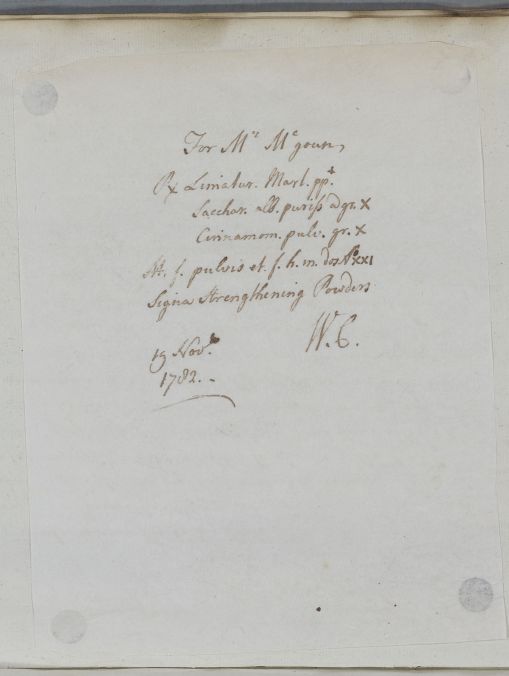 For Mrs Mcgoun,
Rx Limatur. Mart. ppt.
Sacchar. alb. puriss a gr. X
Cinnamom. pulv. gr. X
M. f. pulvis et f. h. m. dos No XXI
Signa Strengthening Powders
W. C.
19 Novr.
1782.-